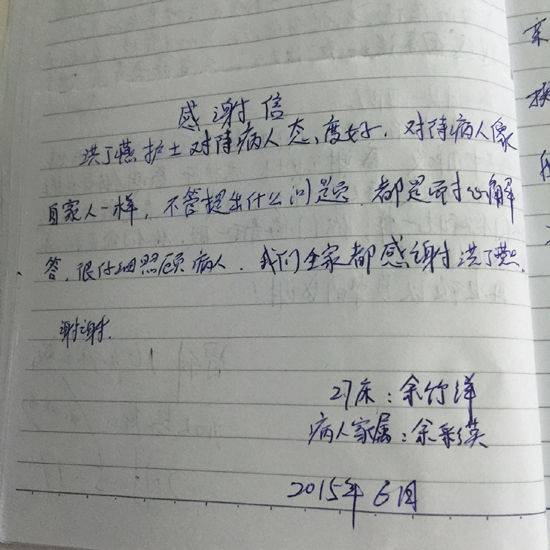 感谢信
洪丁燕护士对待病人态度好，对待病人像
自家人一样，不管提出什么问题，都是耐心解
答，很仔细照顾病人，我们全家都感谢洪丁燕，
谢谢。
27床：余竹洋
病人家属：余彩
2015年6月